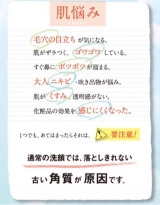 肌悩み
毛穴の目立ちが気になる。
肌がザラつく、ゴワゴワしている。
すぐ鼻にポツポツが溜まる。
大人ニキビ・吹き出物が悩み。
肌がくすみ、透明感がない。
化粧品の効果を感じにくくなった。
1つでも、あてはまったらそれは、
要注意!
通常の洗顔では、落としきれない
古い角質が原因です。